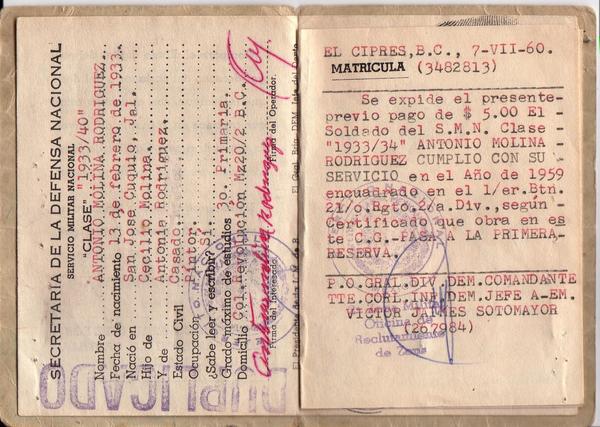 SECRETARÍA DE LA DEFENSA NACIONAL
SERVICIO MILITAR NACIONAL
"CLASE" "1933/40"
Nombre ANTONIO MOLINA RODRIGUEZ.
Fecha de nacimiento 13 de febrero de 1933.
Nació en San José Cuquio, Jal.
Hijo de Cecilio Molina.
Y de Antonia Rodriguez.
Estado Civil Casado.
Ocupación Pintor.
¿Sabe leer y escribir? Si.
Grado máximo de estudios 3o. Primaria.
Domicilio Col. Revolucion Mz20/2 B.C.
Antonio molina Rodriguez
Firma del Interesado.
Firma del Operador.
DUPLICADO
EL CIPRES,B.C., 7-VII-60.
MATRICULA (3482813)
Se expide el presente-
previo pago de $ 5.00 El-
Soldado del S.M.N. Clase-
"1933/34" ANTONIO MOLINA-
RODRIGUEZ CUMPLIO CON SU
SERVICIO en el Año de 1959
encuadrado en el 1/er.Btn.
21/o.Rgto.2/a.Div.,según-
Certificado que obra en es
te C.G.-PASA A LA PRIMERA-
RESERVA.
P.O.GRAL.DIV.DEM.COMANDANTE
TTE.CORL.INF.DEM.JEFE A-EM.
VICTOR JAIMES SOTOMAYOR
(267984)
Oficina de
Reclutamiento
de Zona